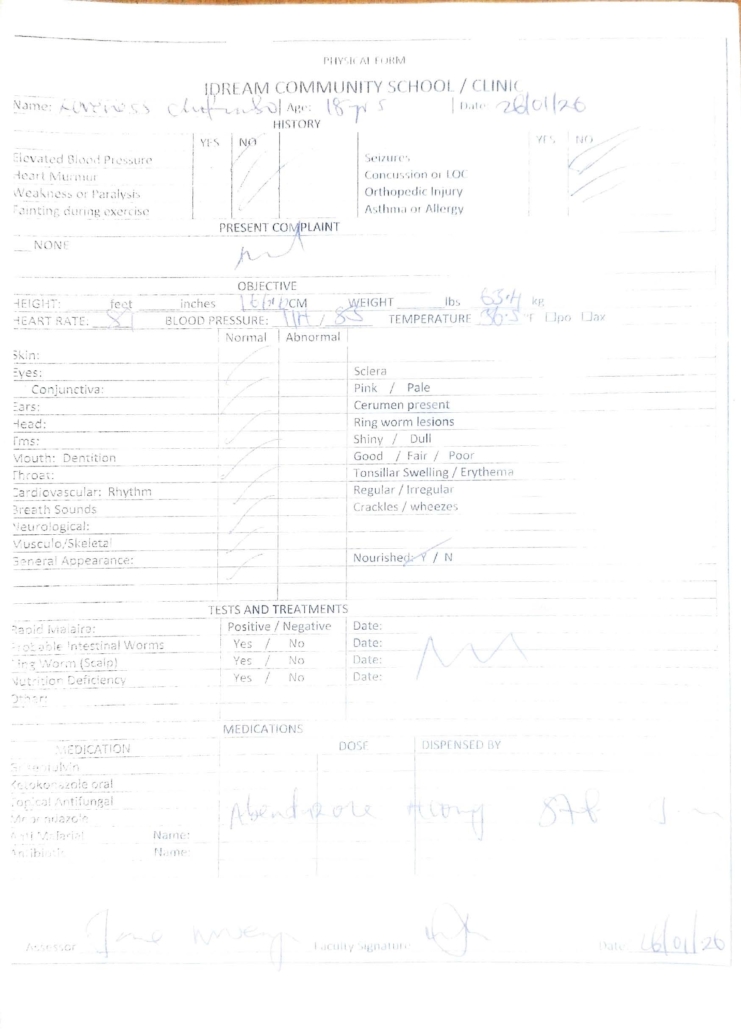 PHYSICAL FORM
IDREAM COMMUNITY SCHOOL / CLINIC
Name: Age: 18yrs Date 26/01/26
HISTORY
YES NO YES NO
Elevated Blood Pressure Seizures
Heart Murmur Concussion or LOC
Weakness or Paralysis Orthopedic Injury
Fainting during exercise Asthma or Allergy
PRESENT COMPLAINT
NONE
OBJECTIVE
HEIGHT: feet inches CM WEIGHT lbs 63.4 kg
HEART RATE: 81 BLOOD PRESSURE: / 85 TEMPERATURE 36.5 °F □po □ax
Normal Abnormal
Skin:
Eyes: Sclera
Conjunctiva: Pink / Pale
Ears: Cerumen present
Head: Ring worm lesions
Tms: Shiny / Dull
Mouth: Dentition Good / Fair / Poor
Throat: Tonsillar Swelling / Erythema
Cardiovascular: Rhythm Regular / Irregular
Breath Sounds Crackles / wheezes
Neurological:
Musculo/Skeletal
General Appearance: Nourished: Y / N
TESTS AND TREATMENTS
Rapid Malaira: Positive / Negative Date:
Probable Intestinal Worms Yes / No Date:
Ring Worm (Scalp) Yes / No Date:
Nutrition Deficiency Yes / No Date:
Other:
MEDICATIONS
MEDICATION DOSE DISPENSED BY
oral
Topical Antifungal
Abendazole 400mg
Anti Malarial Name:
Antibiotic Name:
Assessor Faculty Signature Date 26/01/26